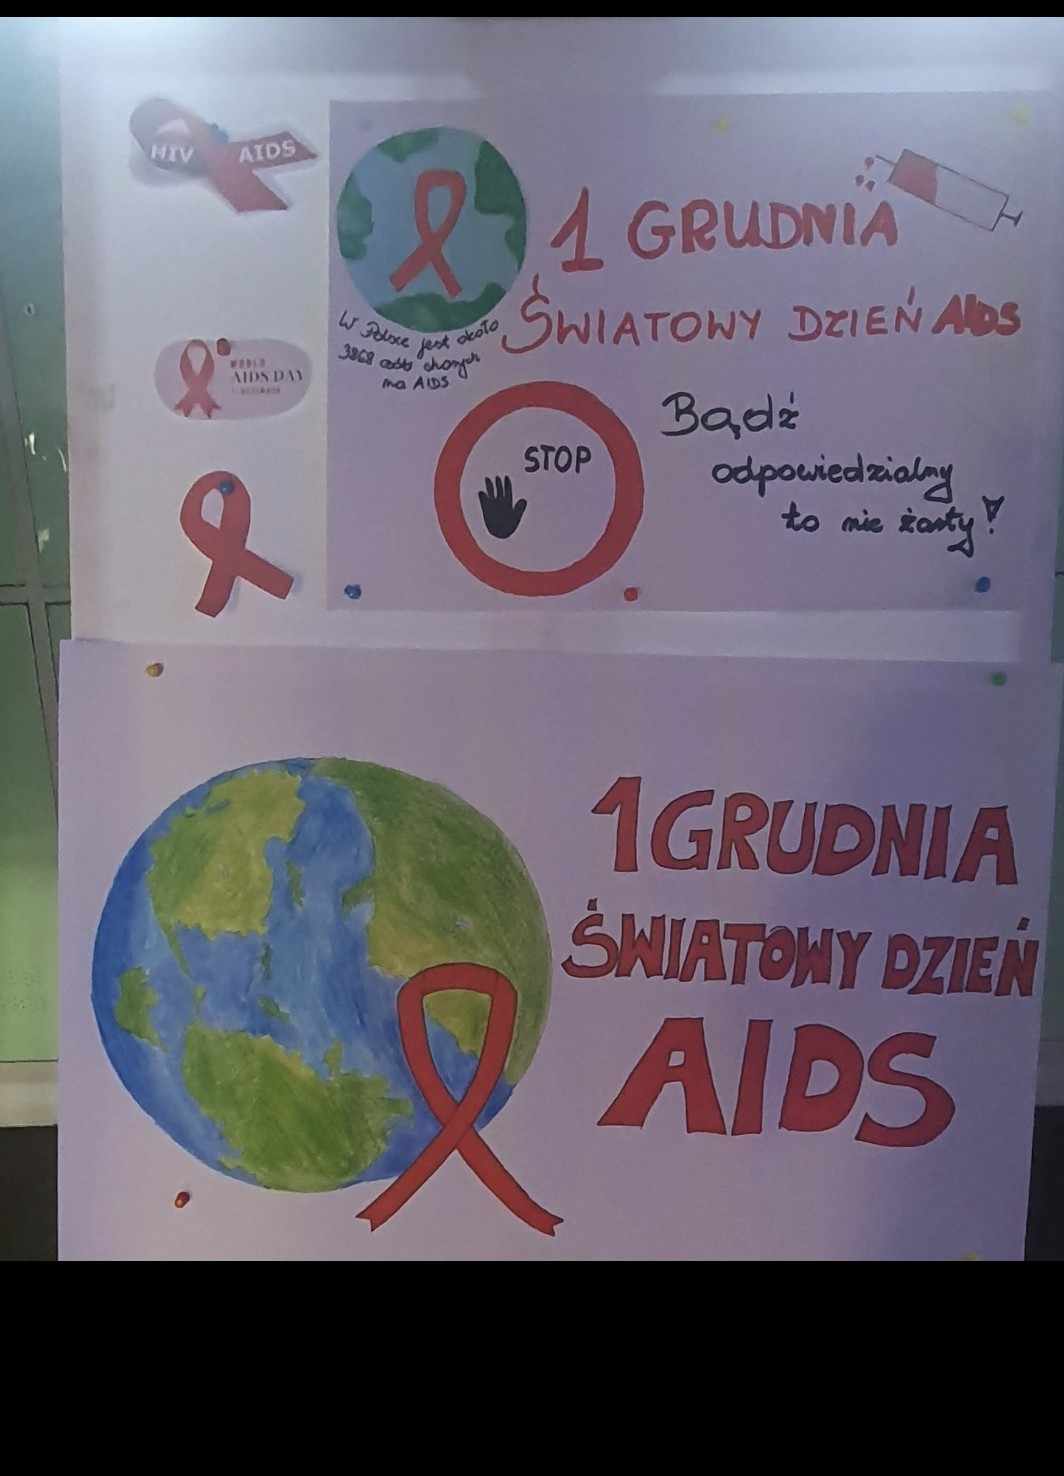 HIV AIDS
1 GRUDNIA
ŚWIATOWY DZIEŃ AIDS
W Polsce jest około
3868 osób chorych
na AIDS
WORLD
AIDS DAY
1 DECEMBER
STOP
Bądź
odpowiedzialny
to nie żarty!
1 GRUDNIA
ŚWIATOWY DZIEŃ
AIDS